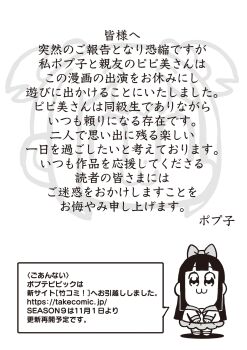 皆様へ
突然のご報告となり恐縮ですが
私ポプ子と親友のピピ美さんは
この漫画の出演をお休みにし
遊びに出かけることにいたしました。
ピピ美さんは同級生でありながら
いつも頼りになる存在です。
二人で思い出に残る楽しい
一日を過ごしたいと考えております。
いつも作品を応援してくださる
読者の皆さまには
ご迷惑をおかけしますことを
お悔やみ申し上げます。
ポプ子
〈ごあんない〉
ポプテピピックは
新サイト[竹コミ！]へお引越ししました。
https://takecomic.jp/
SEASON9は11月1日より
更新再開予定です．